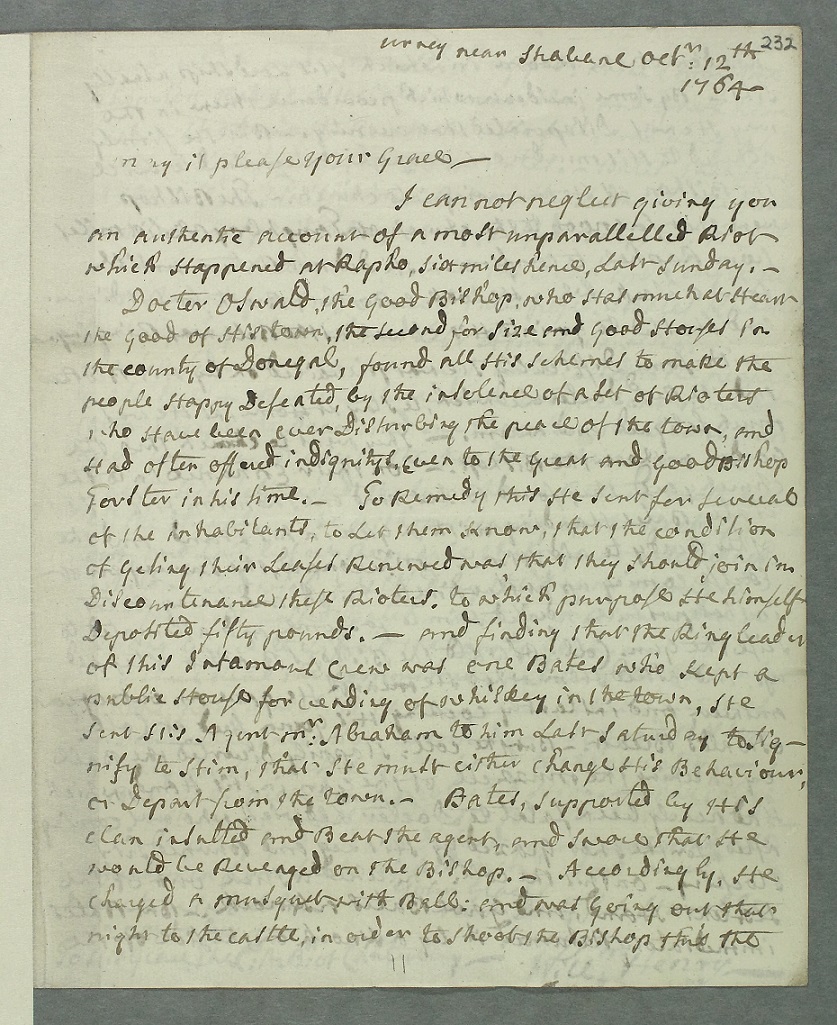 232
urney near Strabane Octr: 12th
1764
may it please your Grace —
I cannot neglect giving you
an authentic account of a most unparallelled Riot
which Happened at Rapho, six miles hence, Last Sunday. —
Docter Oswald, the Good Bishop, who Has much at Heart
the Good of His town, the second for size and Good Houses in
the county of Donegal, found all His schemes to make the
people Happy Defeated, by the insolence of a Set of Rioters
who Have been ever Disturbing the peace of the town, and
Had often offered indignitys, even to the Great and Good Bishop
Forster in his time. — To Remedy this He sent for several
of the inhabitants, to Let them know, that the condition
of Geting their Leases Renewed was that they should join in
Discountenance these Rioters. to which purpose He himself
Deposited fifty pounds. — and finding that the Ring leader
of this Infamous Crew was one Bates who kept a
public House for vending of whiskey in the town, He
sent His Agent mr. Abraham to him Last Saturday to Sig-
nify to Him, that He must either Change His Behaviour,
or Depart from the town. — Bates, supported by His
clan insulted and Beat the agent, and swore that He
would be Revenged on the Bishop. — Accordingly, He
charged a musquet with Ball: and was Going out that
night to the castle, in order to shoot the Bishop thro the
11